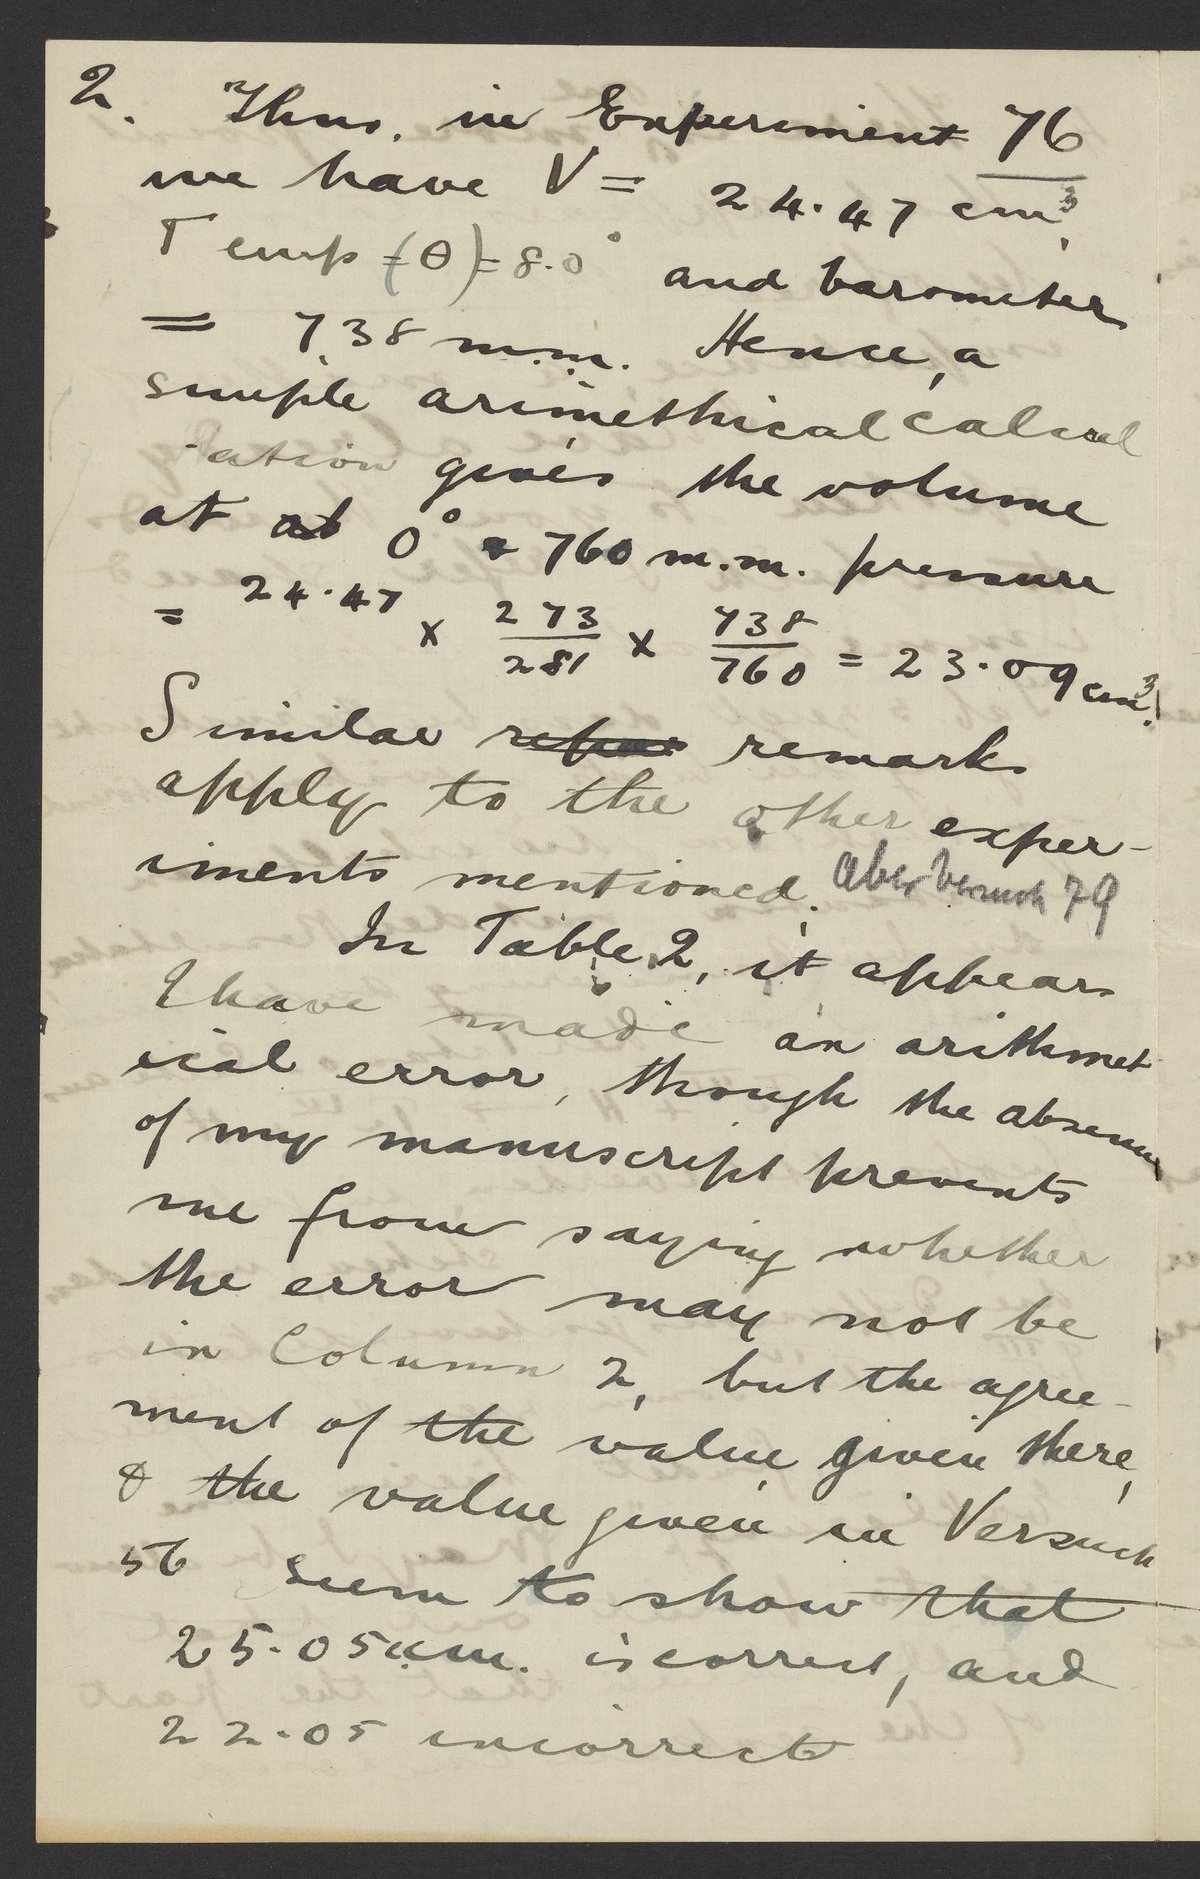 2. Thus, in Experiment 76
we have V = 24.47 cm³,
Temp (θ) = 8.0° and barometer
= 738 m.m. Hence, a
simple arimethical calcul
ation gives the volume
at at 0° & 760 m.m. pressure
= 24.47 × 273/281 × 738/760 = 23.09 cm³.
Similar remarks
apply to the other exper-
iments mentioned. Aber Versuch 79
In Table 2, it appears
I have made an arithmet
ical error, though the absence
of my manuscript prevents
me from saying whether
the error may not be
in Column 2, but the agree-
ment of the value given there,
& the value given in Versuch
56 seem to show that
25.05 ccm. is correct, and
22.05 incorrect